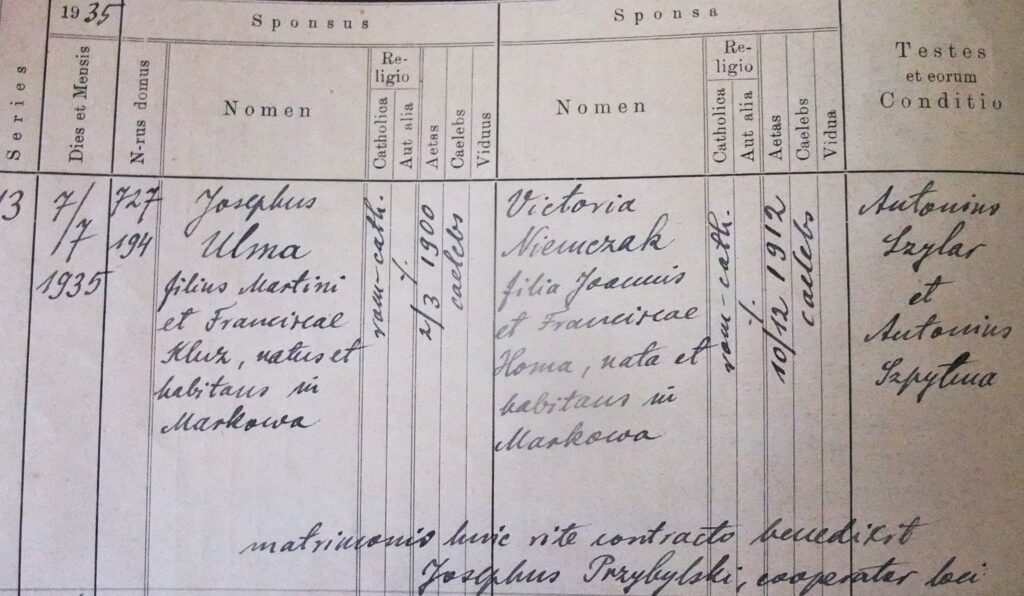 1935
Sponsus
Sponsa
Series
Dies et Mensis
N-rus domus
Nomen
Religio
Catholica
Aut alia
Aetas
Caelebs
Viduus
Nomen
Religio
Catholica
Aut alia
Aetas
Caelebs
Vidua
Testes
et eorum
Conditio
13
7/
/7
1935
727
194
Josephus
Ulma
filius Martini
et Franciscae
Kluz, natus et
habitans in
Markowa
rom-cath.
./.
2/3 1900
caelebs
Victoria
Niemczak
filia Joannis
et Franciscae
Homa, nata et
habitans in
Markowa
rom-cath.
./.
10/12 1912
caelebs
Antonius
Szylar
et
Antonius
Szpytma
matrimonio huic rite contracto benedixit
Josephus Przybylski, cooperator loci